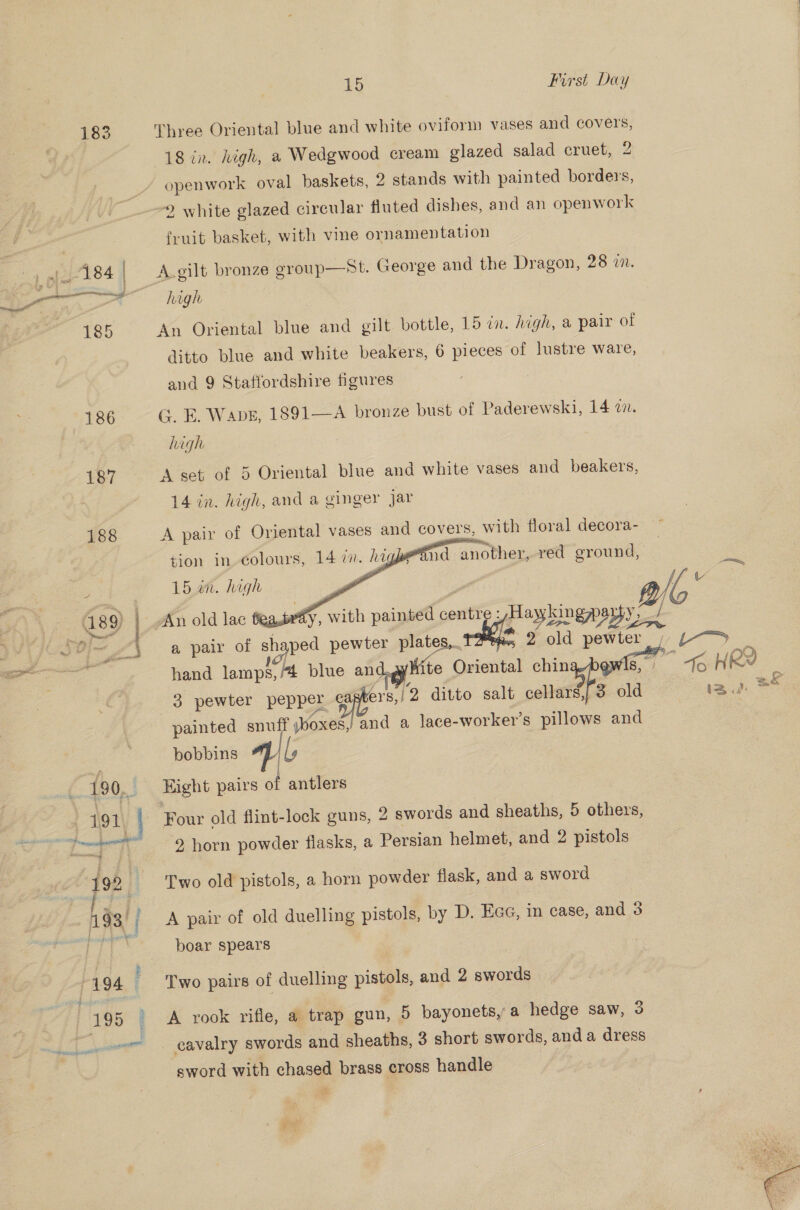 15 First Day
183 Three Oriental blue and white oviform vases and covers,
18 in. high, a Wedgwood cream glazed salad cruet, 2
openwork oval baskets, 2 stands with painted borders,
2 white glazed circular fluted dishes, and an openwork
fruit basket, with vine ornamentation
184 A gilt bronze group—St. George and the Dragon, 28 in.
high
185 An Oriental blue and gilt bottle, 15 in. high, a pair of
ditto blue and white beakers, 6 pieces of lustre ware,
and 9 Staffordshire figures
186 G. E. WADE, 1891—A bronze bust of Paderewski, 14 in.
high
187 A set of 5 Oriental blue and white vases and beakers,
14 in. high, and a ginger jar
188 A pair of Oriental vases and covers, with floral decora-
tion in colours, 14 in. high and another, red ground,
15 in. high
189 An old lac tea tray, with painted centre: Hawking party,
a pair of shaped pewter plates, 2 old pewter
hand lamps, 4 blue and white Oriental china bowls, To HRD
3 pewter pepper casters, 2 ditto salt cellars, 3 old
painted snuff boxes, and a lace-worker's pillows and
bobbins
190 Eight pairs of antlers
191 Four old flint-lock guns, 2 swords and sheaths, 5 others,
2 horn powder flasks, a Persian helmet, and 2 pistols
192 Two old pistols, a horn powder flask, and a sword
193 A pair of old duelling pistols, by D. EGG, in case, and 3
boar spears
194 Two pairs of duelling pistols, and 2 swords
195 A rook rifle, a trap gun, 5 bayonets, a hedge saw, 3
cavalry swords and sheaths, 3 short swords, and a dress
sword with chased brass cross handle